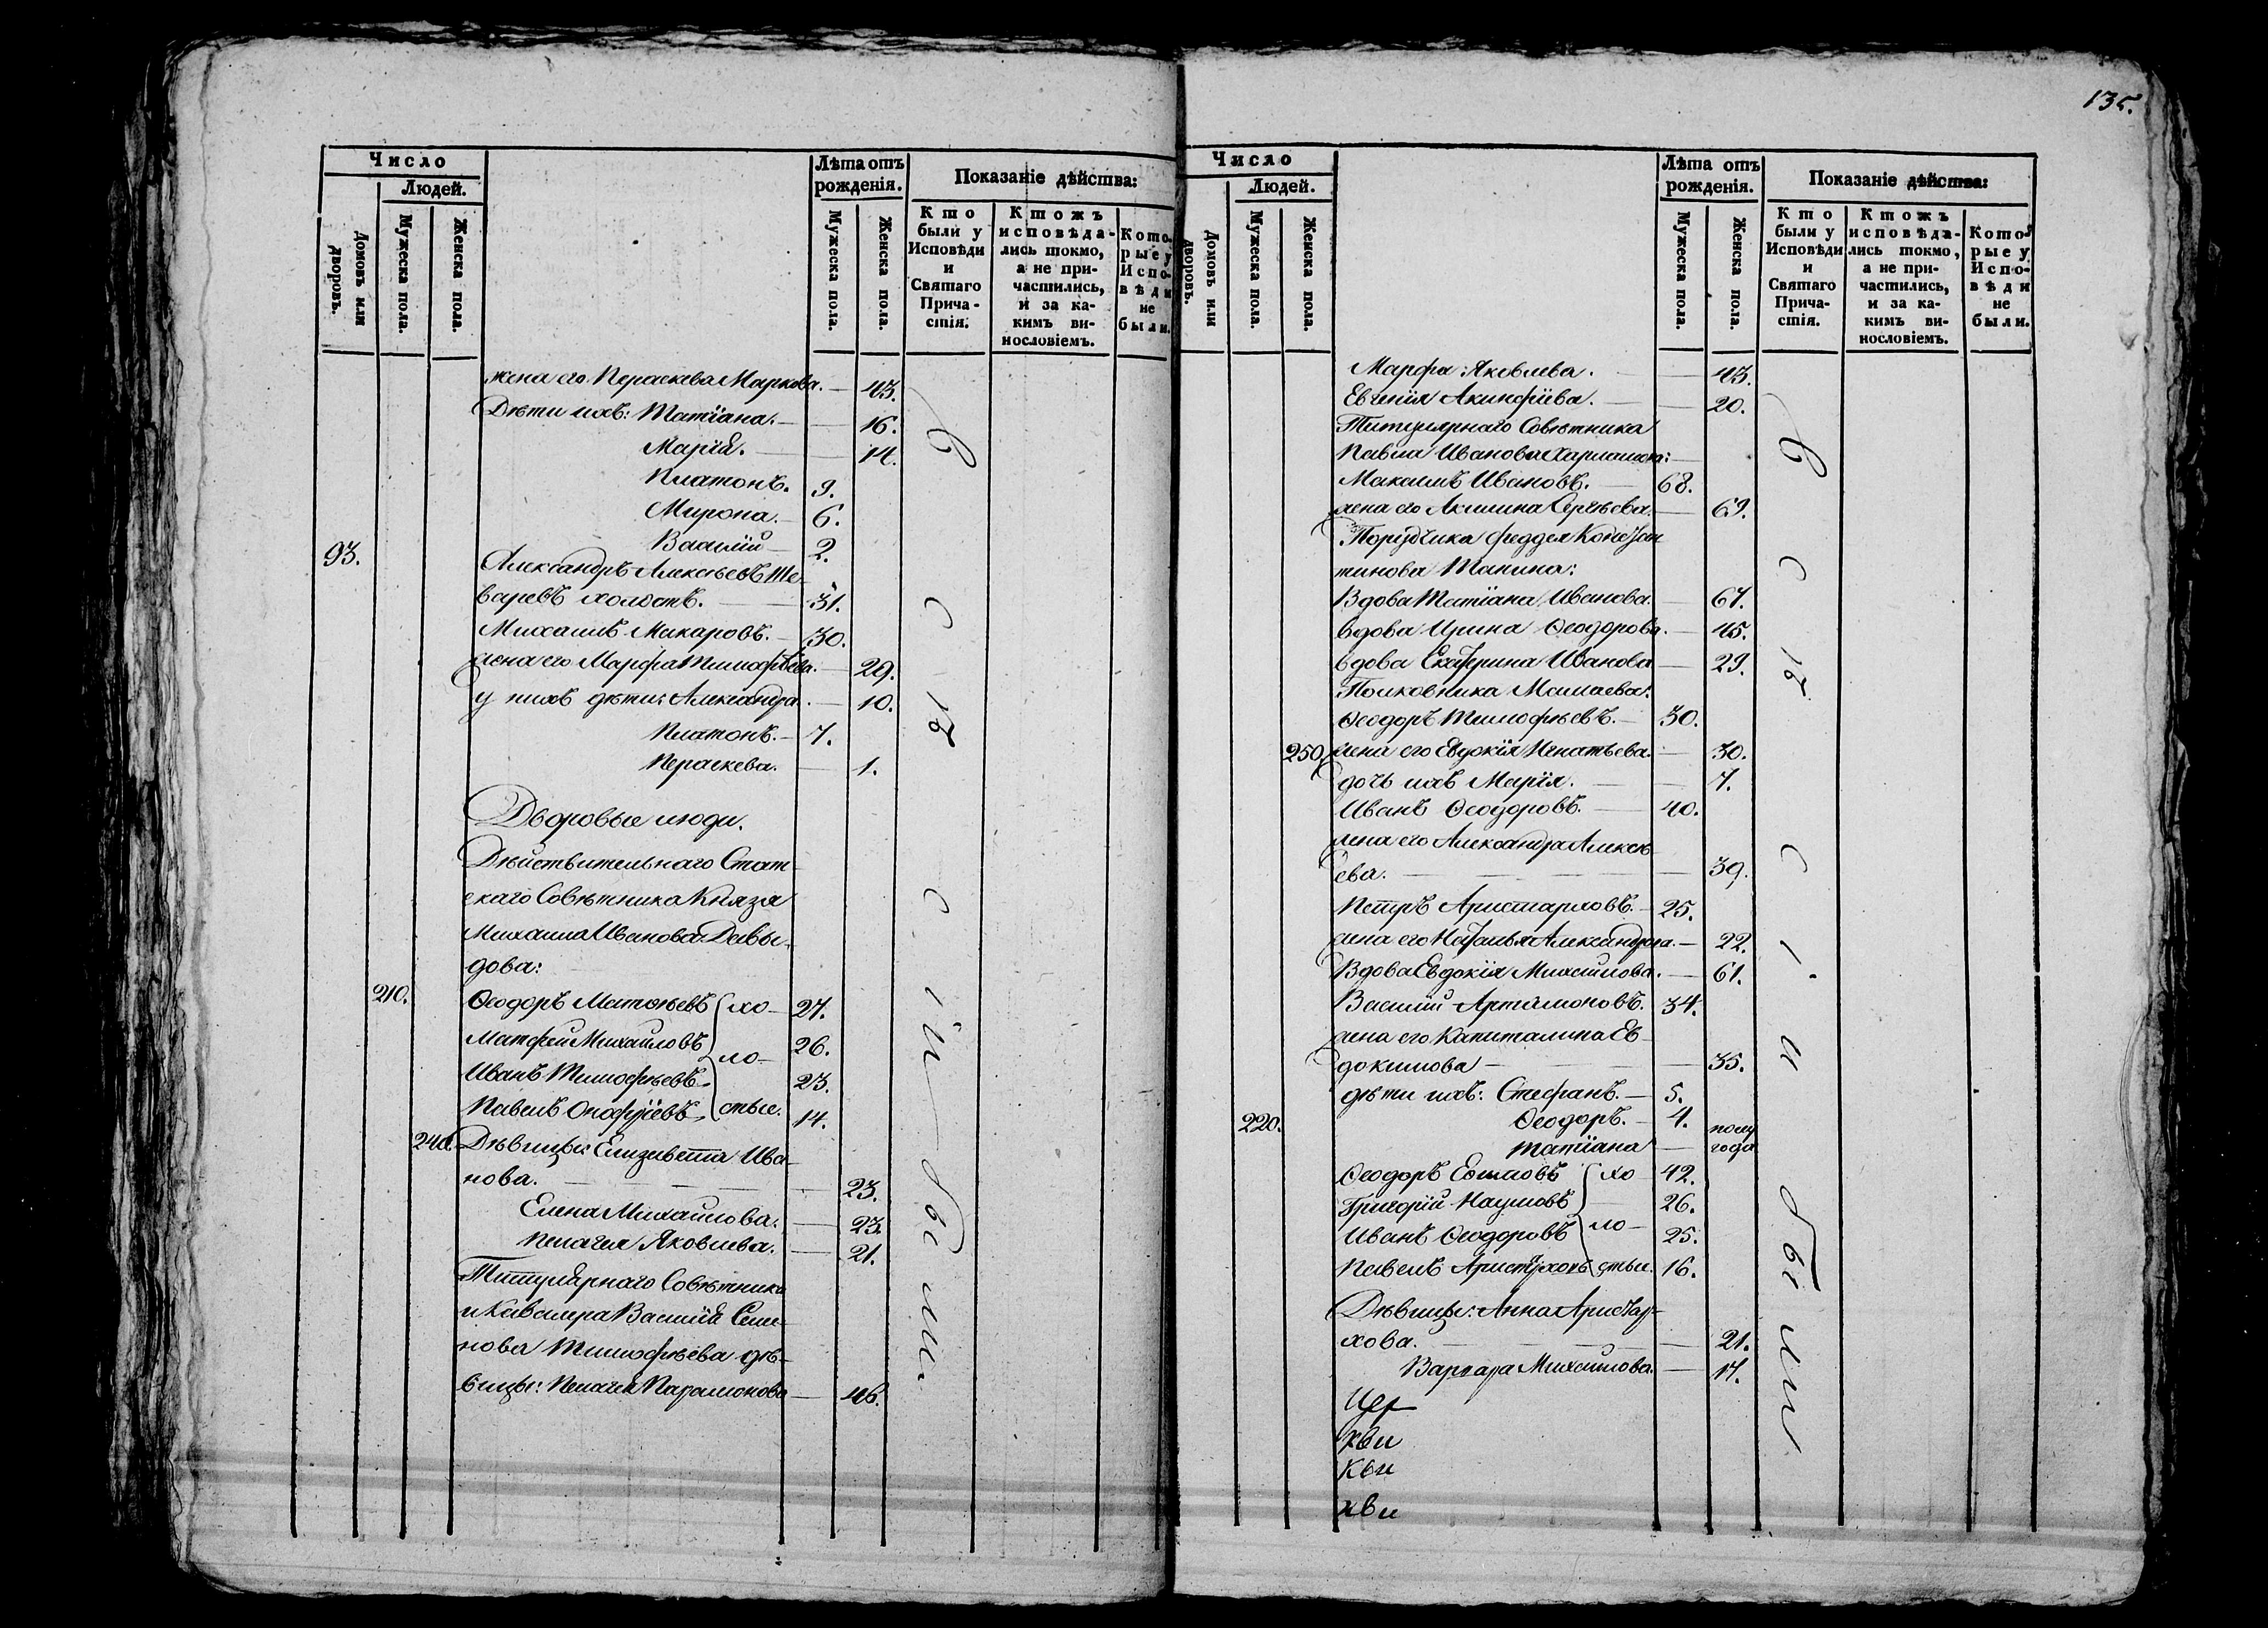 135.
Число
Людей.
Домовъ или дворовъ.
Мужеска пола.
Женска пола.
Лѣта отъ рожденія.
Мужеска пола.
Женска пола.
Показаніе дѣйства:
Кто были у Исповѣди и Святаго Причастія.
Ктожъ исповѣдались токмо, а не причастились, и за какимъ винословіемъ.
Которые у Исповѣди не были.
жена его Параскева Маркова. — 43.
Дѣти ихъ: Татіана. — 16.
Марія. — 14.
Платонъ. 9.
Мирона. — 6.
Василій — 2.
93. Александръ Алексѣевъ
варевъ холостъ. — 31.
Михаилъ Макаровъ. — 30.
жена его Марфа Тимофѣева. — 29.
у нихъ дѣти: Александра. — 10.
Платонъ. — 7.
Параскева. — 1.
Дворовые люди.
Дѣйствительнаго Стат
скаго Совѣтника Князя
Михаила Иванова Давы-
дова:
210. Ѳеодоръ Матвѣевъ хо— 27.
Матфей Михайловъ 26.
ло—
Иванъ Тимофѣевъ 23.
Павелъ стые. 14.
240. Дѣвицы: Елизавета Ива-
нова. — 23.
Елена Михаилова. — 23.
Пелагея Яковлева. — 21.
Титулярнаго Совѣтника
и Кавалера Василія Семе-
нова Тимофѣева дѣ-
вицы: Пелагея Парамонова — 46.
съ сь іи были
Число
Людей.
Домовъ или дворовъ.
Мужеска пола.
Женска пола.
Лѣта отъ рожденія.
Мужеска пола.
Женска пола.
Показаніе дѣйства:
Кто были у Исповѣди и Святаго Причастія.
Ктожъ исповѣдались токмо, а не причастились, и за какимъ винословіемъ.
Которые у Исповѣди не были.
Марфа Яковлева. — 43.
Евгенія Акинфіева. — 20.
Титулярнаго Совѣтника
Павла Иванова
Максимъ Ивановъ. — 68.
жена его Акилина Сергѣева. — 69.
Порутчика Феддея Констан
тинова Танина:
Вдова Татіана Иванова. — 67.
вдова Ирина Ѳеодорова. — 45.
вдова Екатерина Иванова — 29.
Полковника Мамаева:
Ѳеодоръ Тимофѣевъ. — 30.
250. жена его Евдокія Игнатьева. — 30.
дочь ихъ Марія. — 7.
Иванъ Ѳеодоровъ. — 40.
жена его Александра Алексѣ
ева. — 39.
Петръ Аристарховъ. — 25.
жена его Наталья Александрова. — 22.
Вдова Евдокія Михаилова. — 61.
Василій Артамоновъ. 34.
жена его Капиталина Ев
докимова — 35.
дѣти ихъ: Стефанъ. — 5.
220. Ѳеодоръ. — 4.
Татіана — полу года
Ѳеодоръ Ефимовъ хо 42.
Григорій Наумовъ 26.
Иванъ Ѳеодоровъ ло— 25.
Павелъ Аристарховъ стые. 16.
Дѣвицы: Анна Аристар-
хова. — 21.
Варвара Михаилова. — 17.
Цер
кви
Кви
кви